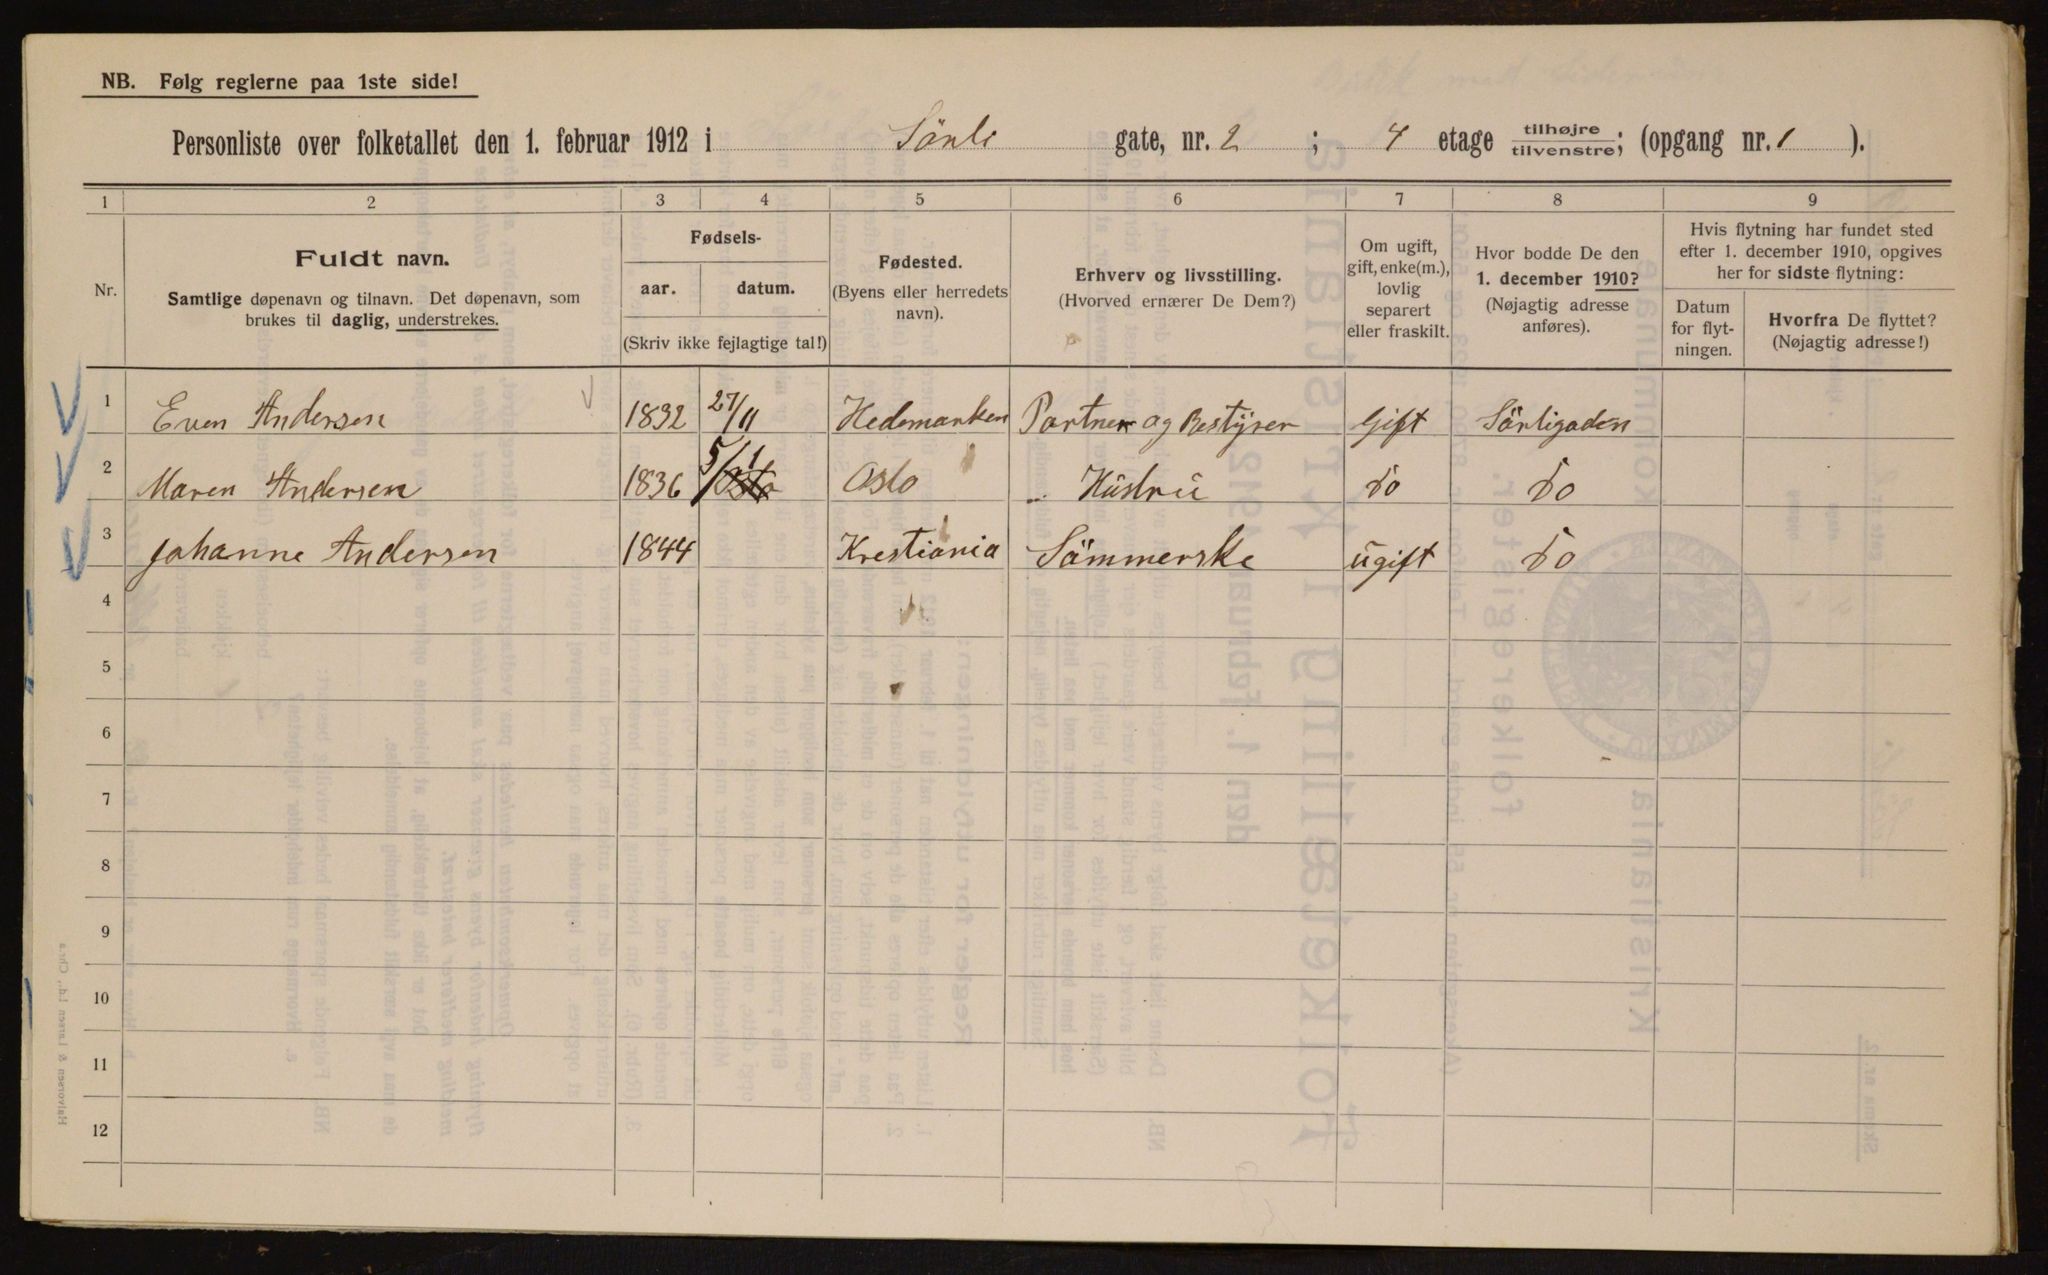 NB. Følg reglerne paa 1ste side!
Personliste over folketallet den 1. februar 1912 i Sörli gate, nr. 2 ; 4 etage tilhøjre/tilvenstre; (opgang nr. 1 ).
1 2 3 4 5 6 7 8 9
Nr.
Fuldt navn.
Samtlige døpenavn og tilnavn. Det døpenavn, som
brukes til daglig, understrekes.
Fødsels-
aar. datum.
(Skriv ikke fejlagtige tal!)
Fødested.
(Byens eller herredets
navn).
Erhverv og livsstilling.
(Hvorved ernærer De Dem?)
Om ugift,
gift, enke(m.),
lovlig
separert
eller fraskilt.
Hvor bodde De den
1. december 1910?
(Nøjagtig adresse
anføres).
Hvis flytning har fundet sted
efter 1. december 1910, opgives
her for sidste flytning:
Datum
for flyt-
ningen.
Hvorfra De flyttet?
(Nøjagtig adresse!)
1 Even Andersen 1832 27/11 Hedemarken Portner og Bestyrer Gift Sörligaden
2 Maren Andersen 1836 5/1 Oslo Hustru Do Do
3 Johanne Andersen 1844 Krestiania Sömmerske ugift Do
4
5
6
7
8
9
10
11
12
Halvorsen & Larsen ltd., Chr.a